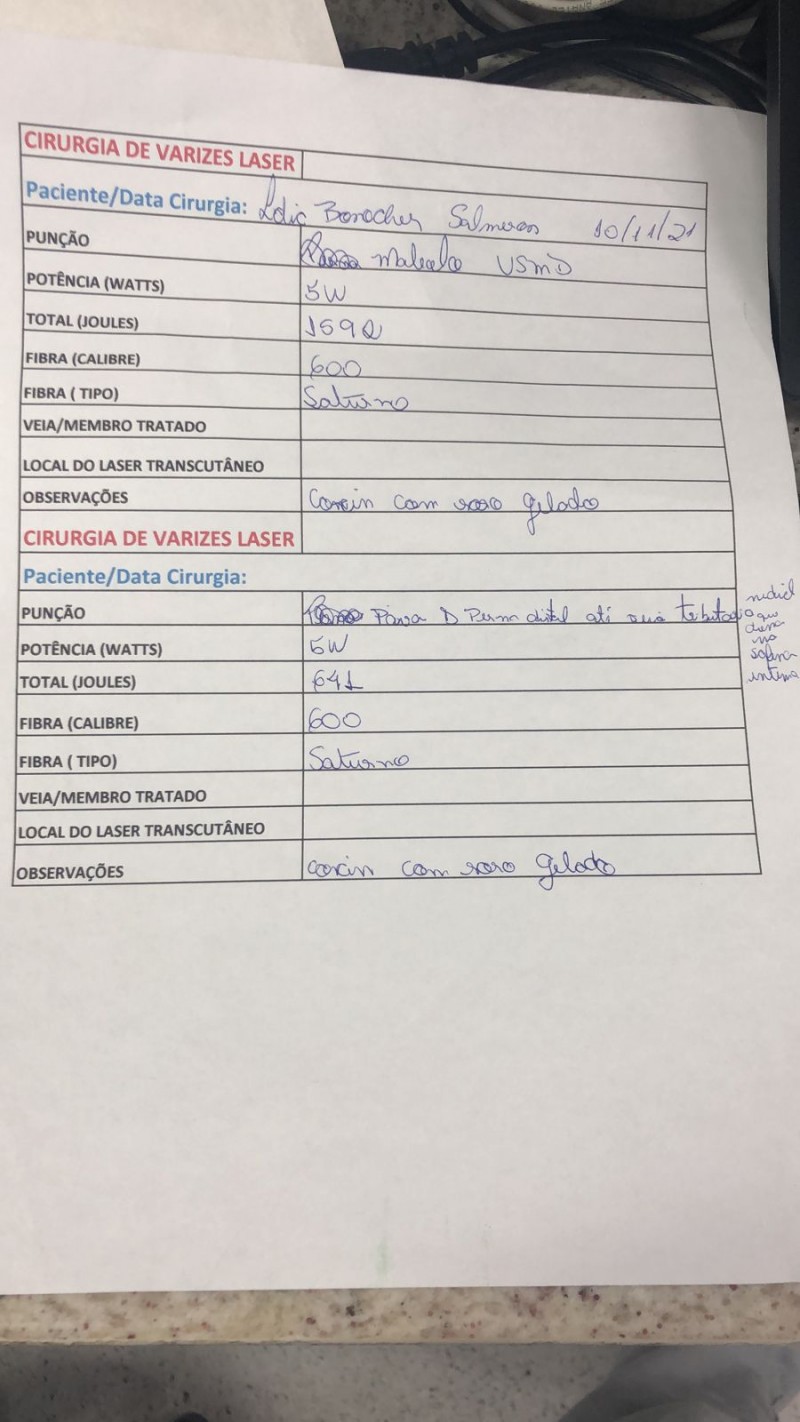 CIRURGIA DE VARIZES LASER
Paciente/Data Cirurgia: Salmeron 10/11/21
PUNÇÃO Maleolo VSMD
POTÊNCIA (WATTS) 5W
TOTAL (JOULES) 1592
FIBRA (CALIBRE) 600
FIBRA ( TIPO) Saturno
VEIA/MEMBRO TRATADO
LOCAL DO LASER TRANSCUTÂNEO
OBSERVAÇÕES com soro gelado
CIRURGIA DE VARIZES LASER
Paciente/Data Cirurgia:
PUNÇÃO D Perna distal até sua
POTÊNCIA (WATTS) 5W
TOTAL (JOULES) 641
FIBRA (CALIBRE) 600
FIBRA ( TIPO) Saturno
VEIA/MEMBRO TRATADO
LOCAL DO LASER TRANSCUTÂNEO
OBSERVAÇÕES com soro gelado